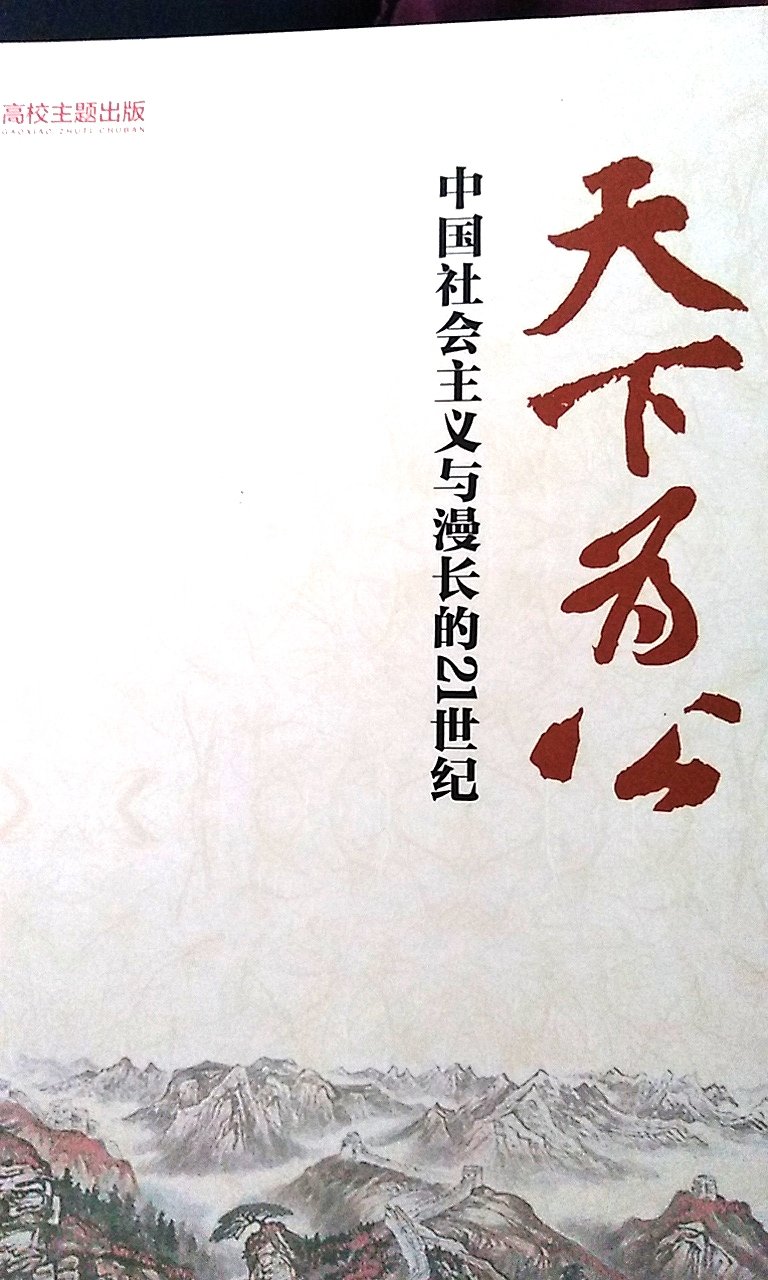 高校主题出版
GAOXIAO ZHUTI CHUBAN
天下为公
中国社会主义与漫长的21世纪